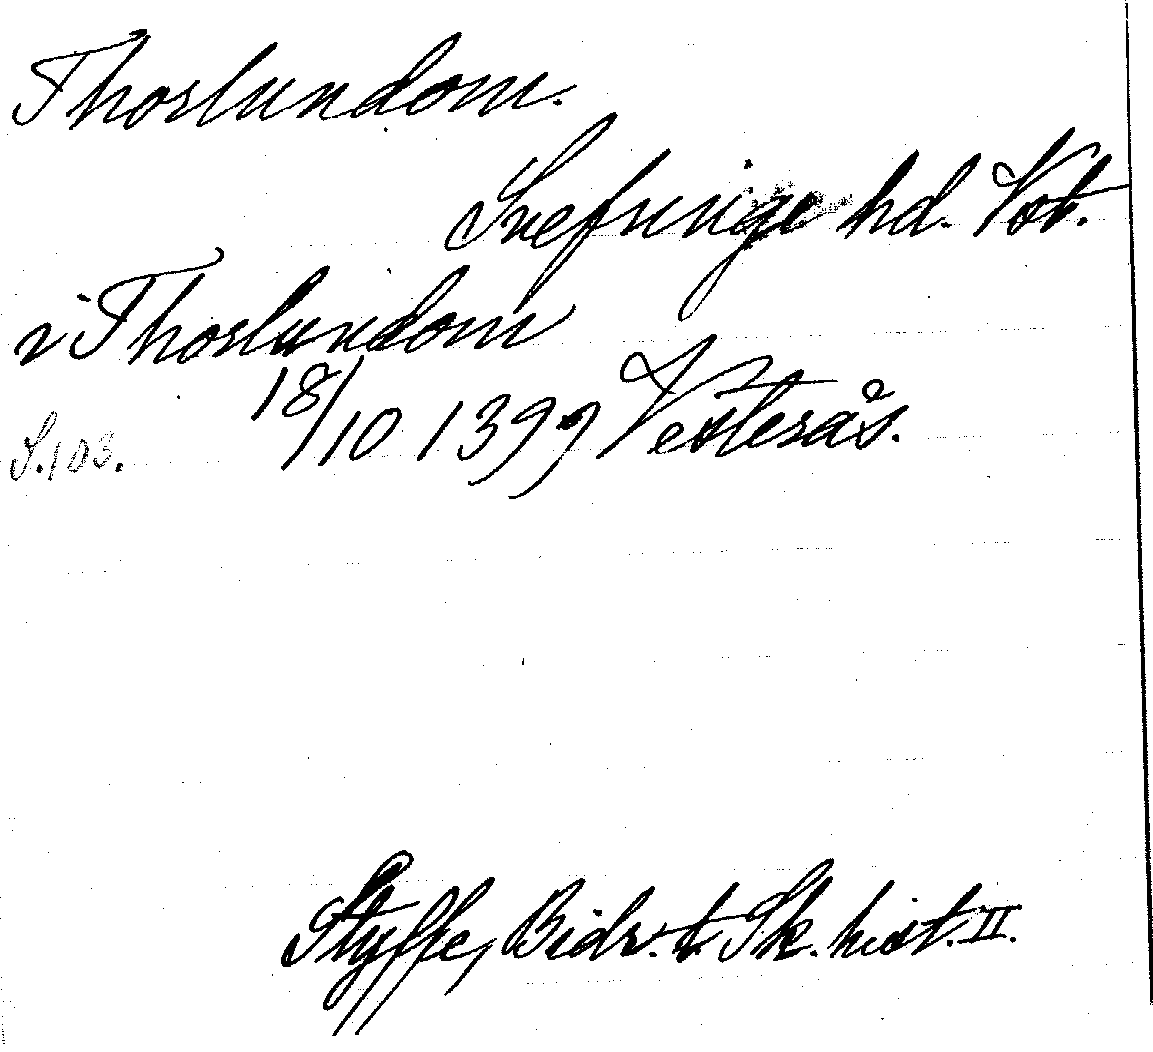 Thorlundom.
Snefringe hd. Vst.
i Thorlundom
18/10 1399 Vesterås.
S. 103.
Styffe, Bidr. t. Sk. hist. II.